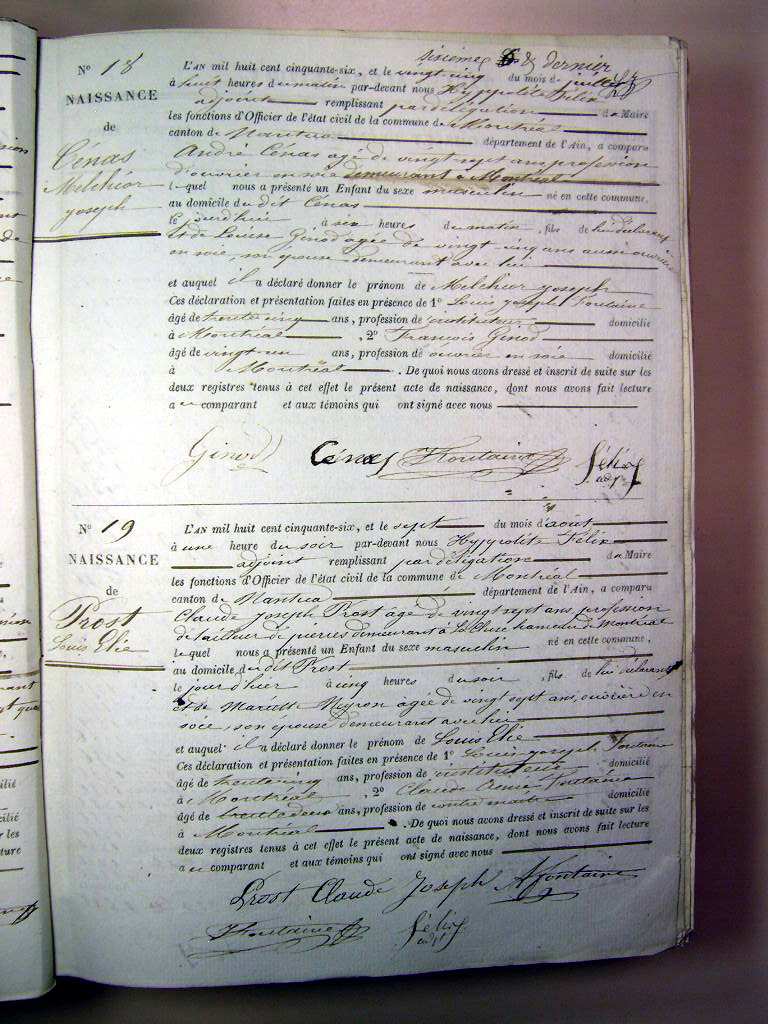 sixième & dernier
N° 18
NAISSANCE
de
Cénas
Melchior
joseph
L'AN mil huit cent cinquante-six, et le vingt cinq du mois de juillet
à huit heures du matin par-devant nous Hyppolite Félix
adjoint remplissant par délégation du Maire
les fonctions d'Officier de l'état civil de la commune de Montréal
canton de Nantua département de l'Ain, a comparu
André Cénas agé de vingt sept ans profession
d'ouvrier en soie demeurant à Montréal
lequel nous a présenté un Enfant du sexe masculin né en cette commune,
au domicile du dit Cénas
le jourd'hui à six heures du matin, fils de lui déclarant
et de Louise Ginod agée de vingt cinq ans aussi ouvrière
en soie, son épouse demeurant avec lui
et auquel il a déclaré donner le prénom de Melchior joseph
Ces déclaration et présentation faites en présence de 1° Louis joseph Fontaine
âgé de trente cinq ans, profession de instituteur domicilié
à Montréal, 2° François Ginod
âgé de vingt un ans, profession de ouvrier en soie domicilié
à Montréal. De quoi nous avons dressé et inscrit de suite sur les
deux registres tenus à cet effet le présent acte de naissance, dont nous avons fait lecture
au comparant et aux témoins qui ont signé avec nous
Ginod Cénas Fontaine Félix
adj
N° 19
NAISSANCE
de
Prost
Louis Elie
L'AN mil huit cent cinquante-six, et le sept du mois d'août
à une heure du soir par-devant nous Hyppolite Félix
adjoint remplissant par délégation du Maire
les fonctions d'Officier de l'état civil de la commune de Montréal
canton de Nantua département de l'Ain, a comparu
Claude joseph Prost agé de vingt sept ans, profession
de tailleur de pierres demeurant à La Cluse hameau de Montréal
lequel nous a présenté un Enfant du sexe masculin né en cette commune,
au domicile du dit Prost
le jour d'hier à cinq heures du soir, fils de lui déclarant
et de Mariette Neyron agée de vingt sept ans, ouvrière en
soie, son épouse demeurant avec lui
et auquel il a déclaré donner le prénom de Louis Elie
Ces déclaration et présentation faites en présence de 1° Louis joseph Fontaine
âgé de trente cinq ans, profession de instituteur domicilié
à Montréal, 2° Claude Fontaine
âgé de trente deux ans, profession de contre maitre domicilié
à Montréal. De quoi nous avons dressé et inscrit de suite sur les
deux registres tenus à cet effet le présent acte de naissance, dont nous avons fait lecture
au comparant et aux témoins qui ont signé avec nous
Prost Claude Joseph Afontaine
Fontaine Félix
adj